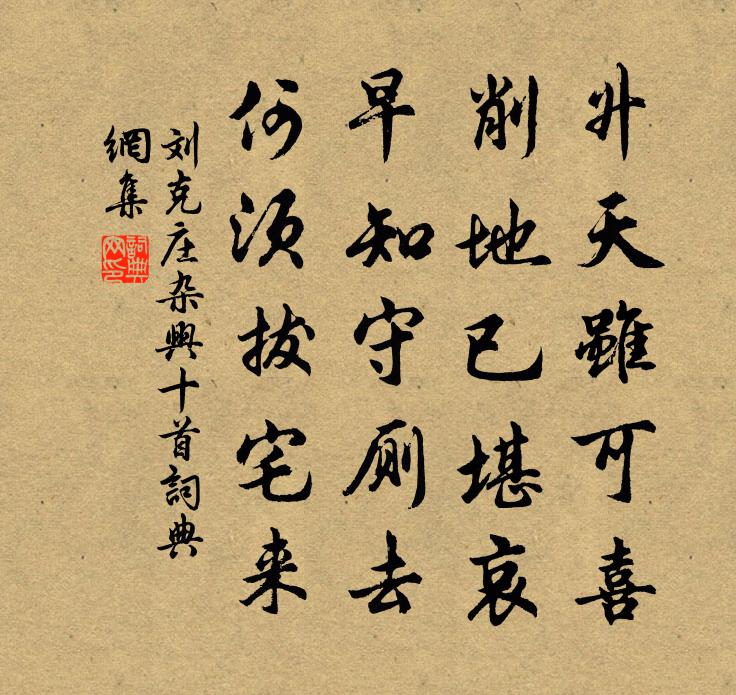 升天雖可喜
削地已堪哀
早知守厠去
何須拔宅来
刘克庄杂興十首詞典
網集
詞典網印